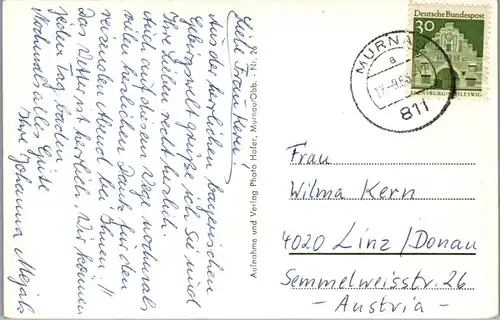 Liebe Frau Kern!
Aus der herrlichen bayerischen
Gebirgswelt grüße ich Sie und
Ihre Lieben recht herzlich.
Auch auf diesem Wege nochmals
vielen herzlichen Dank für den
reizenden Abend bei Ihnen!!
Das Wetter ist herrlich. Wir können
jeden Tag baden
Nochmals alles Gute
Ihre Johanna
Aufnahme und Verlag Photo Hofer, Murnau/Obb. Nr. 92
Deutsche Bundespost
30
FLENSBURG/SCHLESWIG
MURNAU
a
811
Frau
Wilma Kern
4020 Linz/Donau
Semmelweisstr. 26
- Austria -